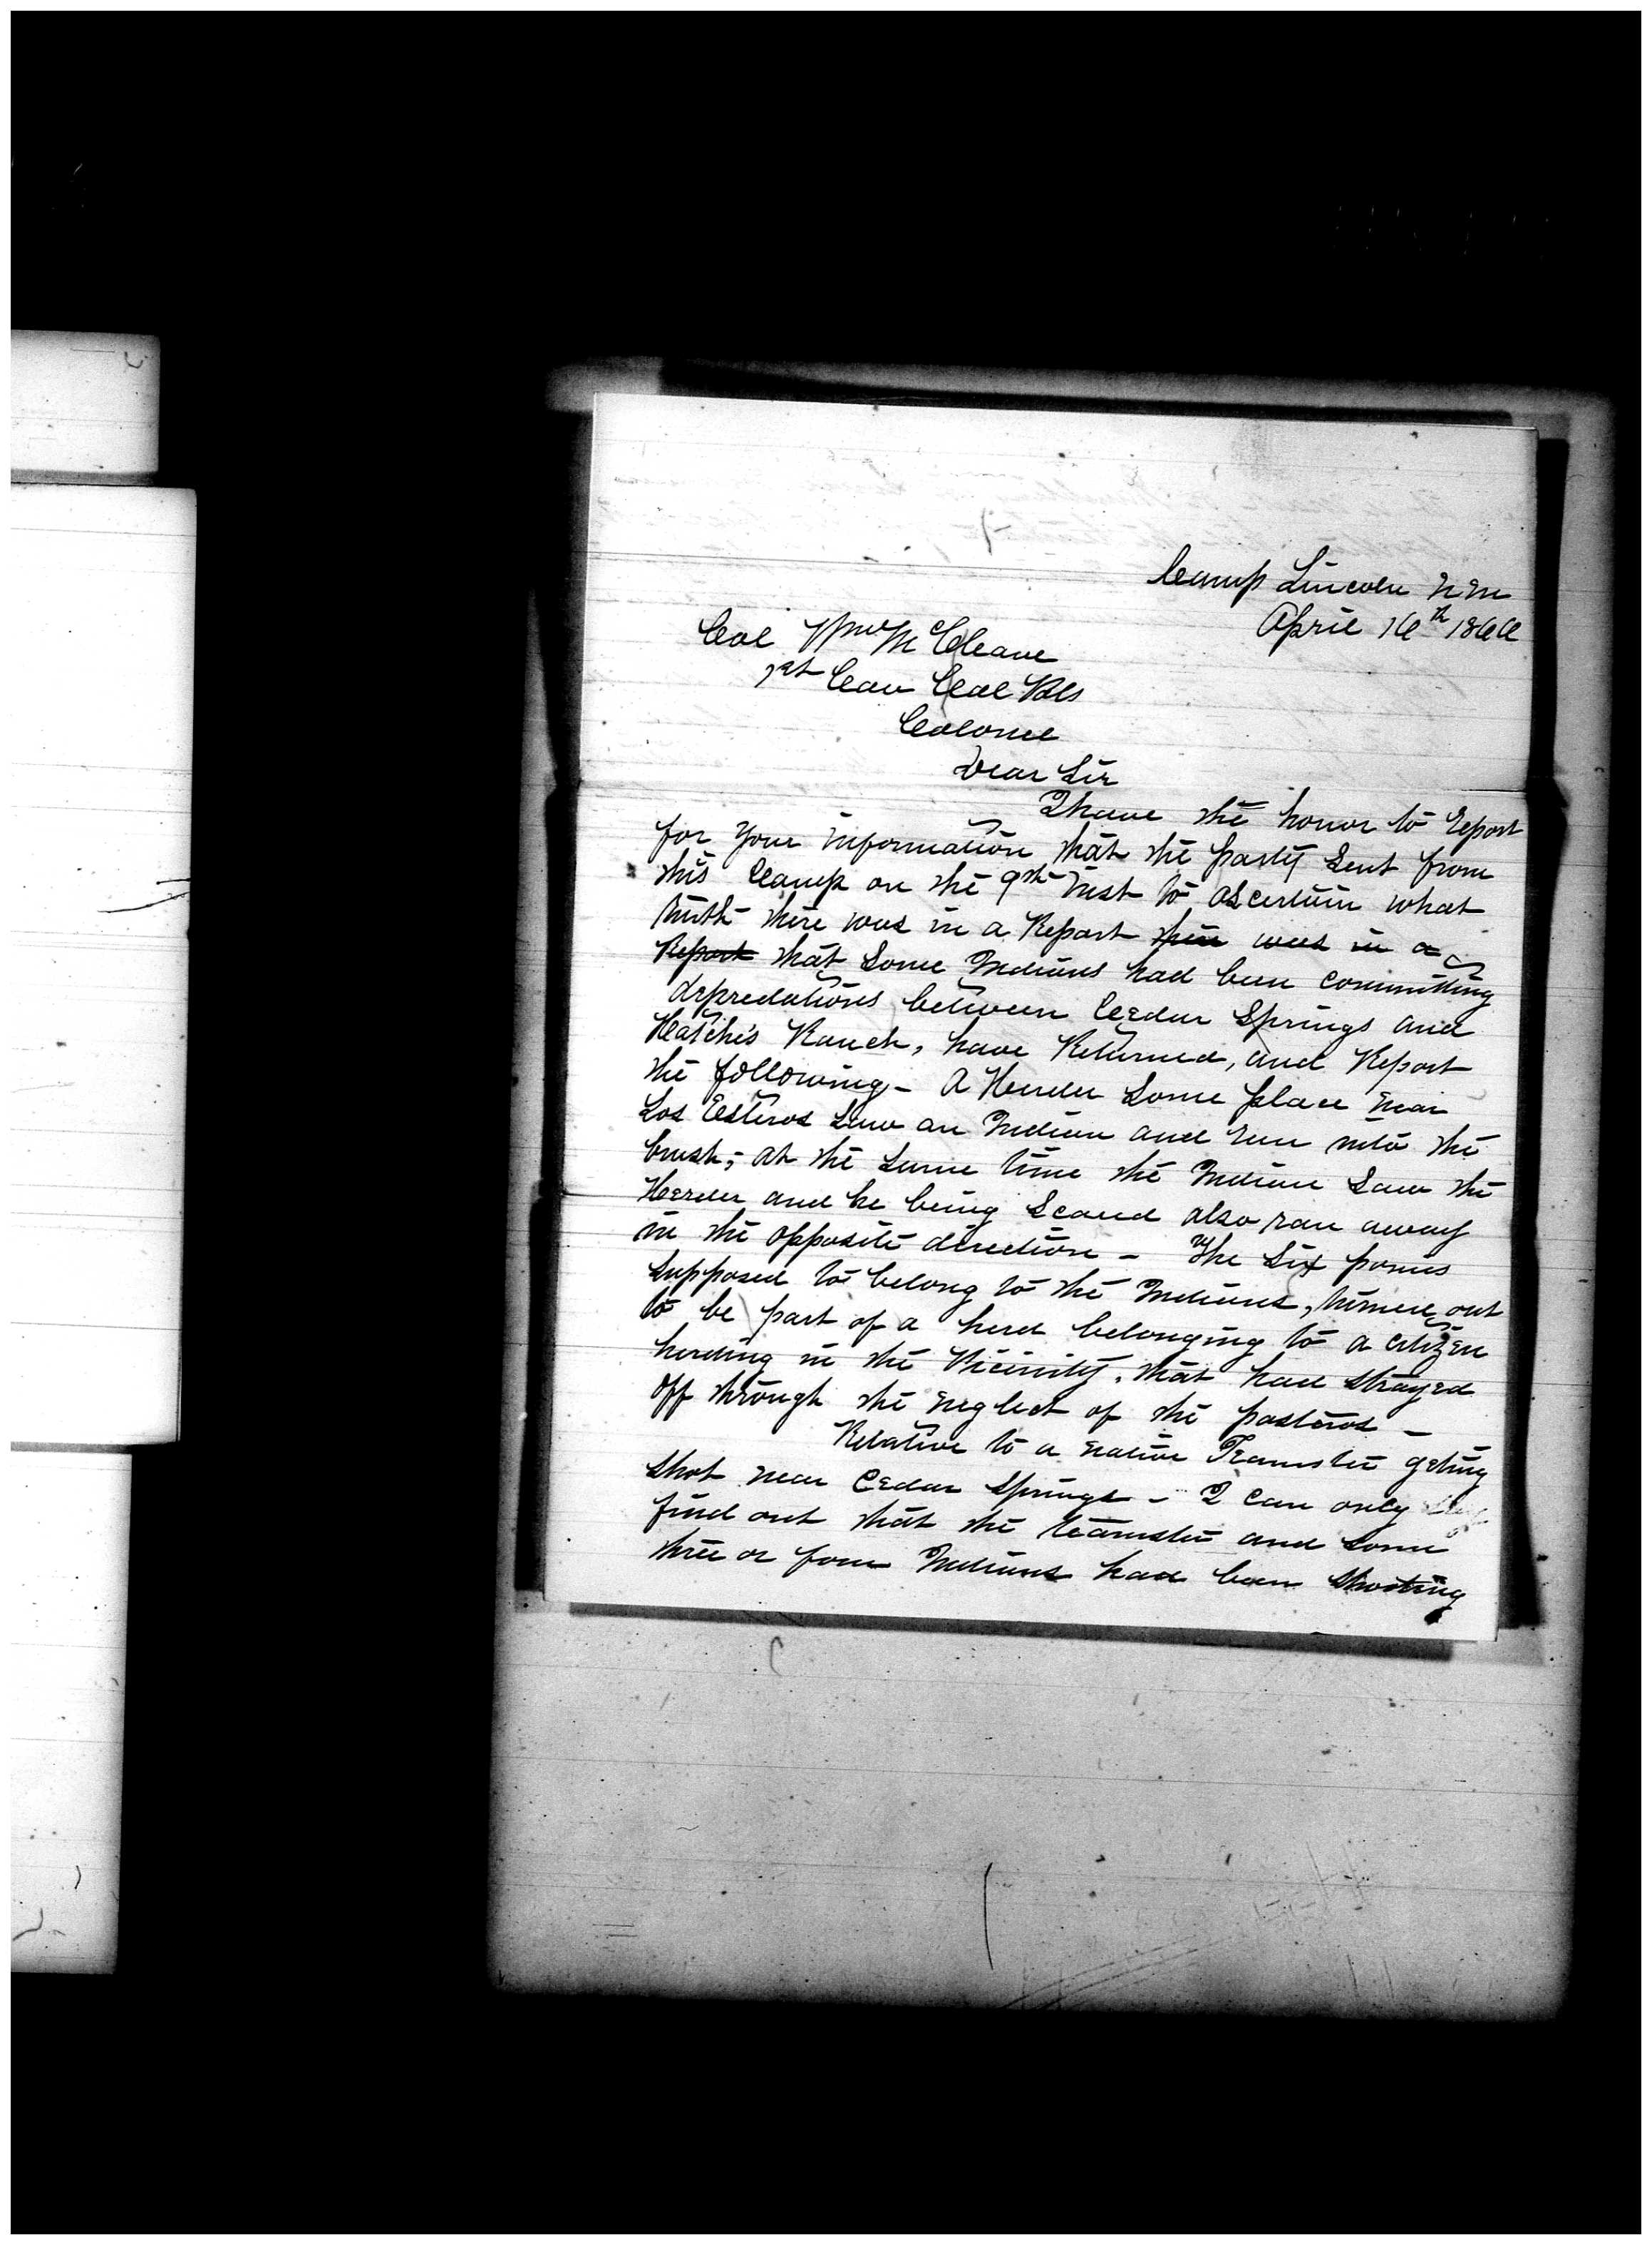 Camp Lincoln N M
April 16th 1866
Col Wm McCleave
1st Cav Cal Vols
Colonel
Dear Sir
I have the honor to report
for your information, that the party sent from
this Camp on the 9th inst to ascertain what
truth there was in a Report there was in a
Report that some Indians had been committing
depredations between Cedar Springs and
Hatch's Ranch, have Returned, and Report
the following - A Herder some place near
Los Esteros saw an Indian and run into the
brush; at the same time the Indian saw the
Herder and he being scared also ran away
in the opposite direction - The six ponies
supposed to belong to the Indians, turned out
to be part of a herd belonging to a citizen
herding in the Vicinity, that had strayed
off through the neglect of the pasteros -
Relative to a native Teamster geting
shot near Cedar Springs - I can only
find out that the teamster and some
three or four Indians had been shooting